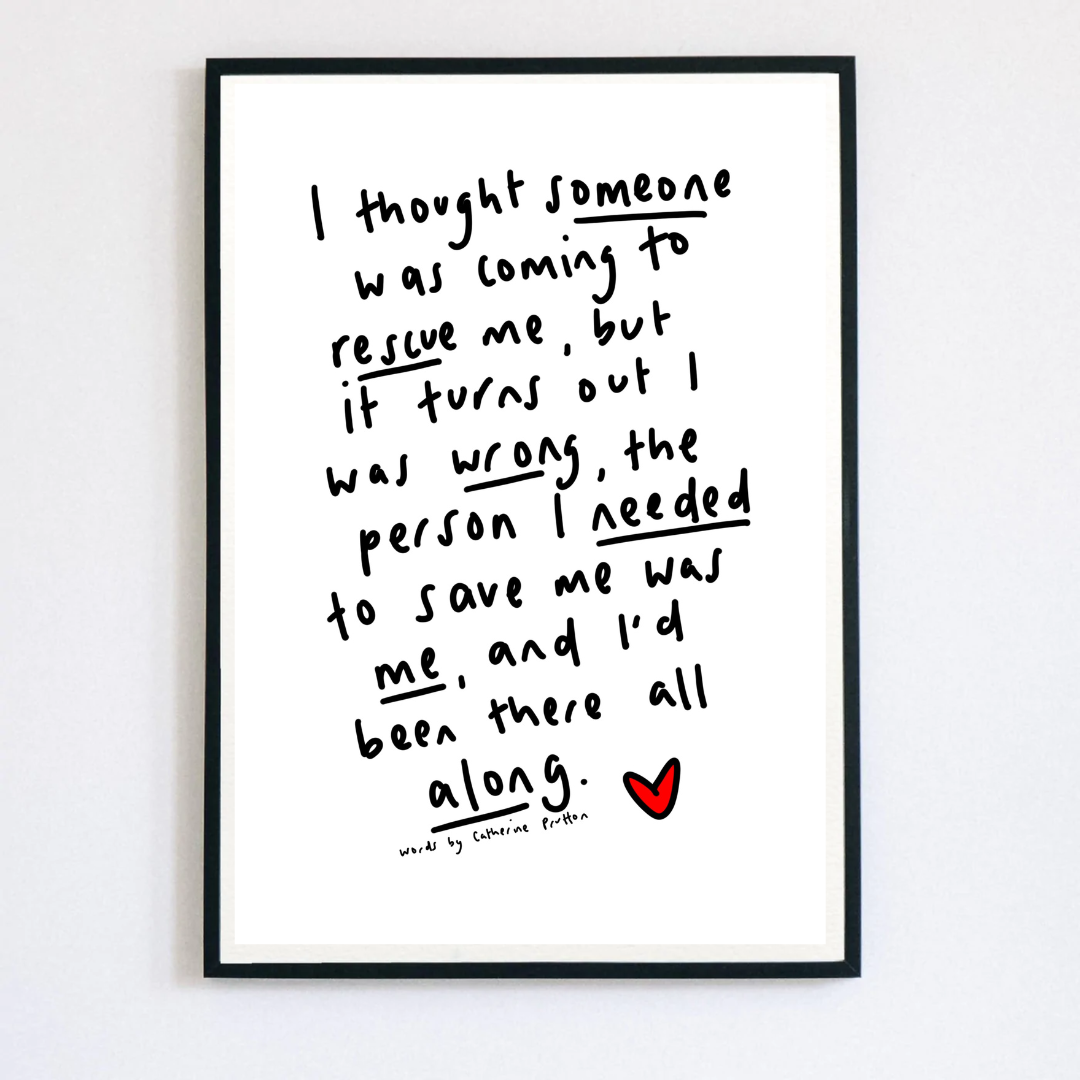 I thought someone
was coming to
rescue me, but
it turns out I
was wrong, the
person I needed
to save me was
me, and I'd
been there all
along.
words by Catherine Prutton